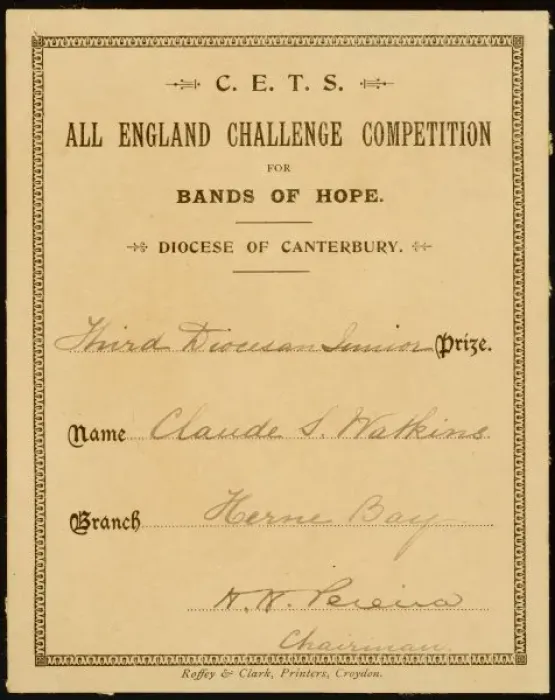 C. E. T. S.
ALL ENGLAND CHALLENGE COMPETITION
FOR
BANDS OF HOPE.
DIOCESE OF CANTERBURY.
Third Diocesan Junior Prize.
Name Claude S. Watkins
Branch Herne Bay
H. H. Pereira
Chairman.
Roffey & Clark, Printers, Croydon.